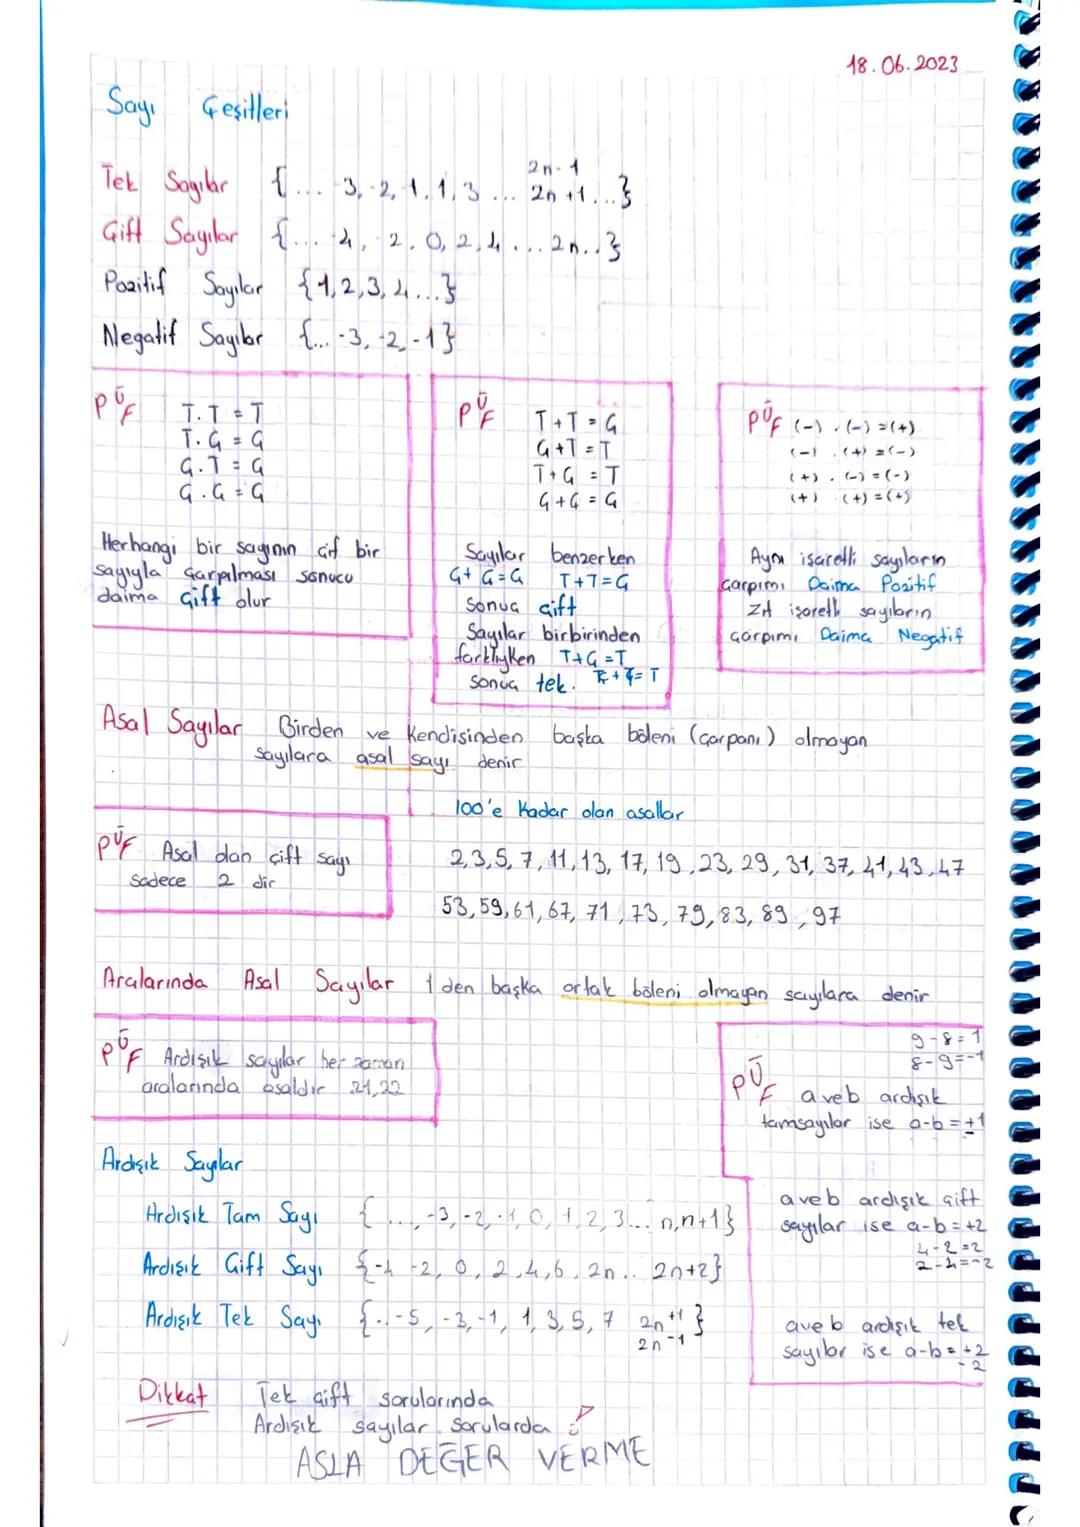 18.06.2023
Sayı Çeşitleri
2n-1
Tek Sayılar {... 3, -2, 1, 1, 3 ... 2n+1...}
Çift Sayılar {... -4, -2, 0, 2, 4 ... 2n..}
Pozitif Sayılar {1,2,3,4...}
Negatif Sayılar {... -3, -2, -1}
PÜF
T.T = T
T.Ç = Ç
Ç.T = Ç
Ç.Ç = Ç
Herhangi bir sayının çif bir
sayıyla çarpılması sonucu
daima çift olur
PÜF
T+T = Ç
Ç+T = T
T+Ç = T
Ç+Ç = Ç
Sayılar benzerken
Ç+Ç=Ç T+T=Ç
Sonuç çift
Sayılar birbirinden
farklıyken T+Ç=T
sonuç tek. Ç+T=T
PÜF (-) . (-) = (+)
(-) . (+) = (-)
(+) . (-) = (-)
(+) . (+) = (+)
Aynı işaretli sayıların
çarpımı Daima Pozitif
Zıt işaretli sayıların
çarpımı Daima Negatif
Asal Sayılar Birden ve Kendisinden başka böleni (çarpanı) olmayan
sayılara asal sayı denir
100'e Kadar olan asallar
PÜF Asal olan çift sayı
sadece 2 dir
2,3,5,7,11,13,17,19,23,29,31,37,41,43,47
53,59,61,67,71,73,79,83,89,97
Aralarında Asal Sayılar 1 den başka ortak böleni olmayan sayılara denir
PÜF Ardışık sayılar her zaman
aralarında asaldır 21,22
9-8=1
8-9=-1
PÜF a ve b ardışık
tamsayılar ise a-b=±1
Ardışık Sayılar
Ardışık Tam Sayı {..., -3, -2, -1, 0, 1, 2, 3... n, n+1}
Ardışık Çift Sayı {-4 -2, 0, 2, 4, 6, 2n.. 2n+2}
Ardışık Tek Sayı {..-5, -3, -1, 1, 3, 5, 7 2n+1}
2n-1
a ve b ardışık çift
sayılar ise a-b=+2
4-2=2
2-4=-2
a ve b ardışık tek
sayılar ise a-b=+2
-2
Dikkat Tek çift sorularında
Ardışık sayılar sorularda
ASLA DEĞER VERME